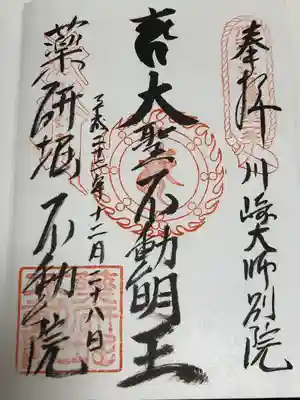 奉拝
川崎大師別院
大聖不動明王
平成二十二年十二月二十八日
薬研堀不動院